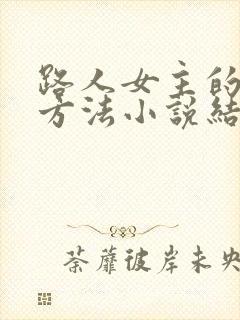 路人女主的
方法小說結
荼蘼彼岸未央